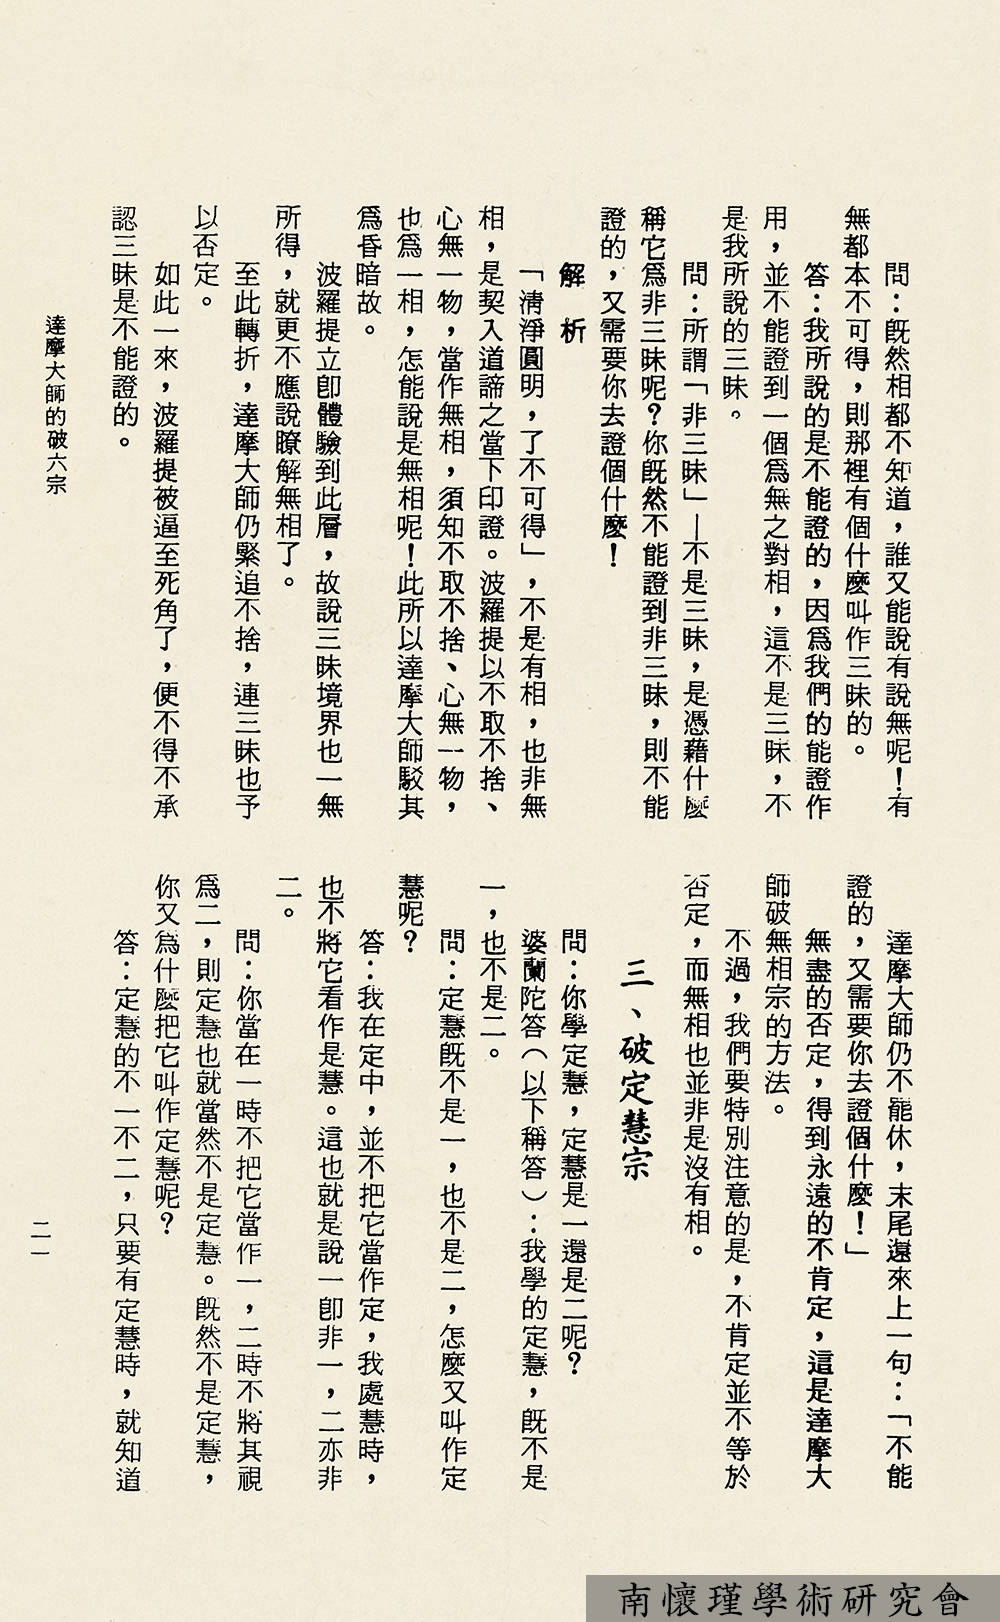 問：既然相都不知道，誰又能說有說無呢！有
無都本不可得，則那裡有個什麼叫作三昧的。
答：我所說的是不能證的，因為我們的能證作
用，並不能證到一個為無之對相，這不是三昧，不
是我所說的三昧。
問：所謂「非三昧」—不是三昧，是憑藉什麼
稱它為非三昧呢？你既然不能證到非三昧，則不能
證的，又需要你去證個什麼！
解析
「清淨圓明，了不可得」，不是有相，也非無
相，是契入道諦之當下印證。波羅提以不取不捨、
心無一物，當作無相，須知不取不捨、心無一物，
也為一相，怎能說是無相呢！此所以達摩大師駁其
為昏暗故。
波羅提立即體驗到此層，故說三昧境界也一無
所得，就更不應說瞭解無相了。
至此轉折，達摩大師仍緊追不捨，連三昧也予
以否定。
如此一來，波羅提被逼至死角了，便不得不承
認三昧是不能證的。
達摩大師仍不能休，末尾還來上一句：「不能
證的，又需要你去證個什麼！」
無盡的否定，得到永遠的不肯定，這是達摩大
師破無相宗的方法。
不過，我們要特別注意的是，不肯定並不等於
否定，而無相也並非是沒有相。
三、破定慧宗
問：你學定慧，定慧是一還是二呢？
婆蘭陀答（以下稱答）：我學的定慧，既不是
一，也不是二。
問：定慧既不是一，也不是二，怎麼又叫作定
慧呢？
答：我在定中，並不把它當作定，我處慧時，
也不將它看作是慧。這也就是說一即非一，二亦非
二。
問：你當在一時不把它當作一，二時不將其視
為二，則定慧也就當然不是定慧。既然不是定慧，
你又為什麼把它叫作定慧呢？
答：定慧的不一不二，只要有定慧時，就知道
達摩大師的破六宗
二一
南懷瑾學術研究會